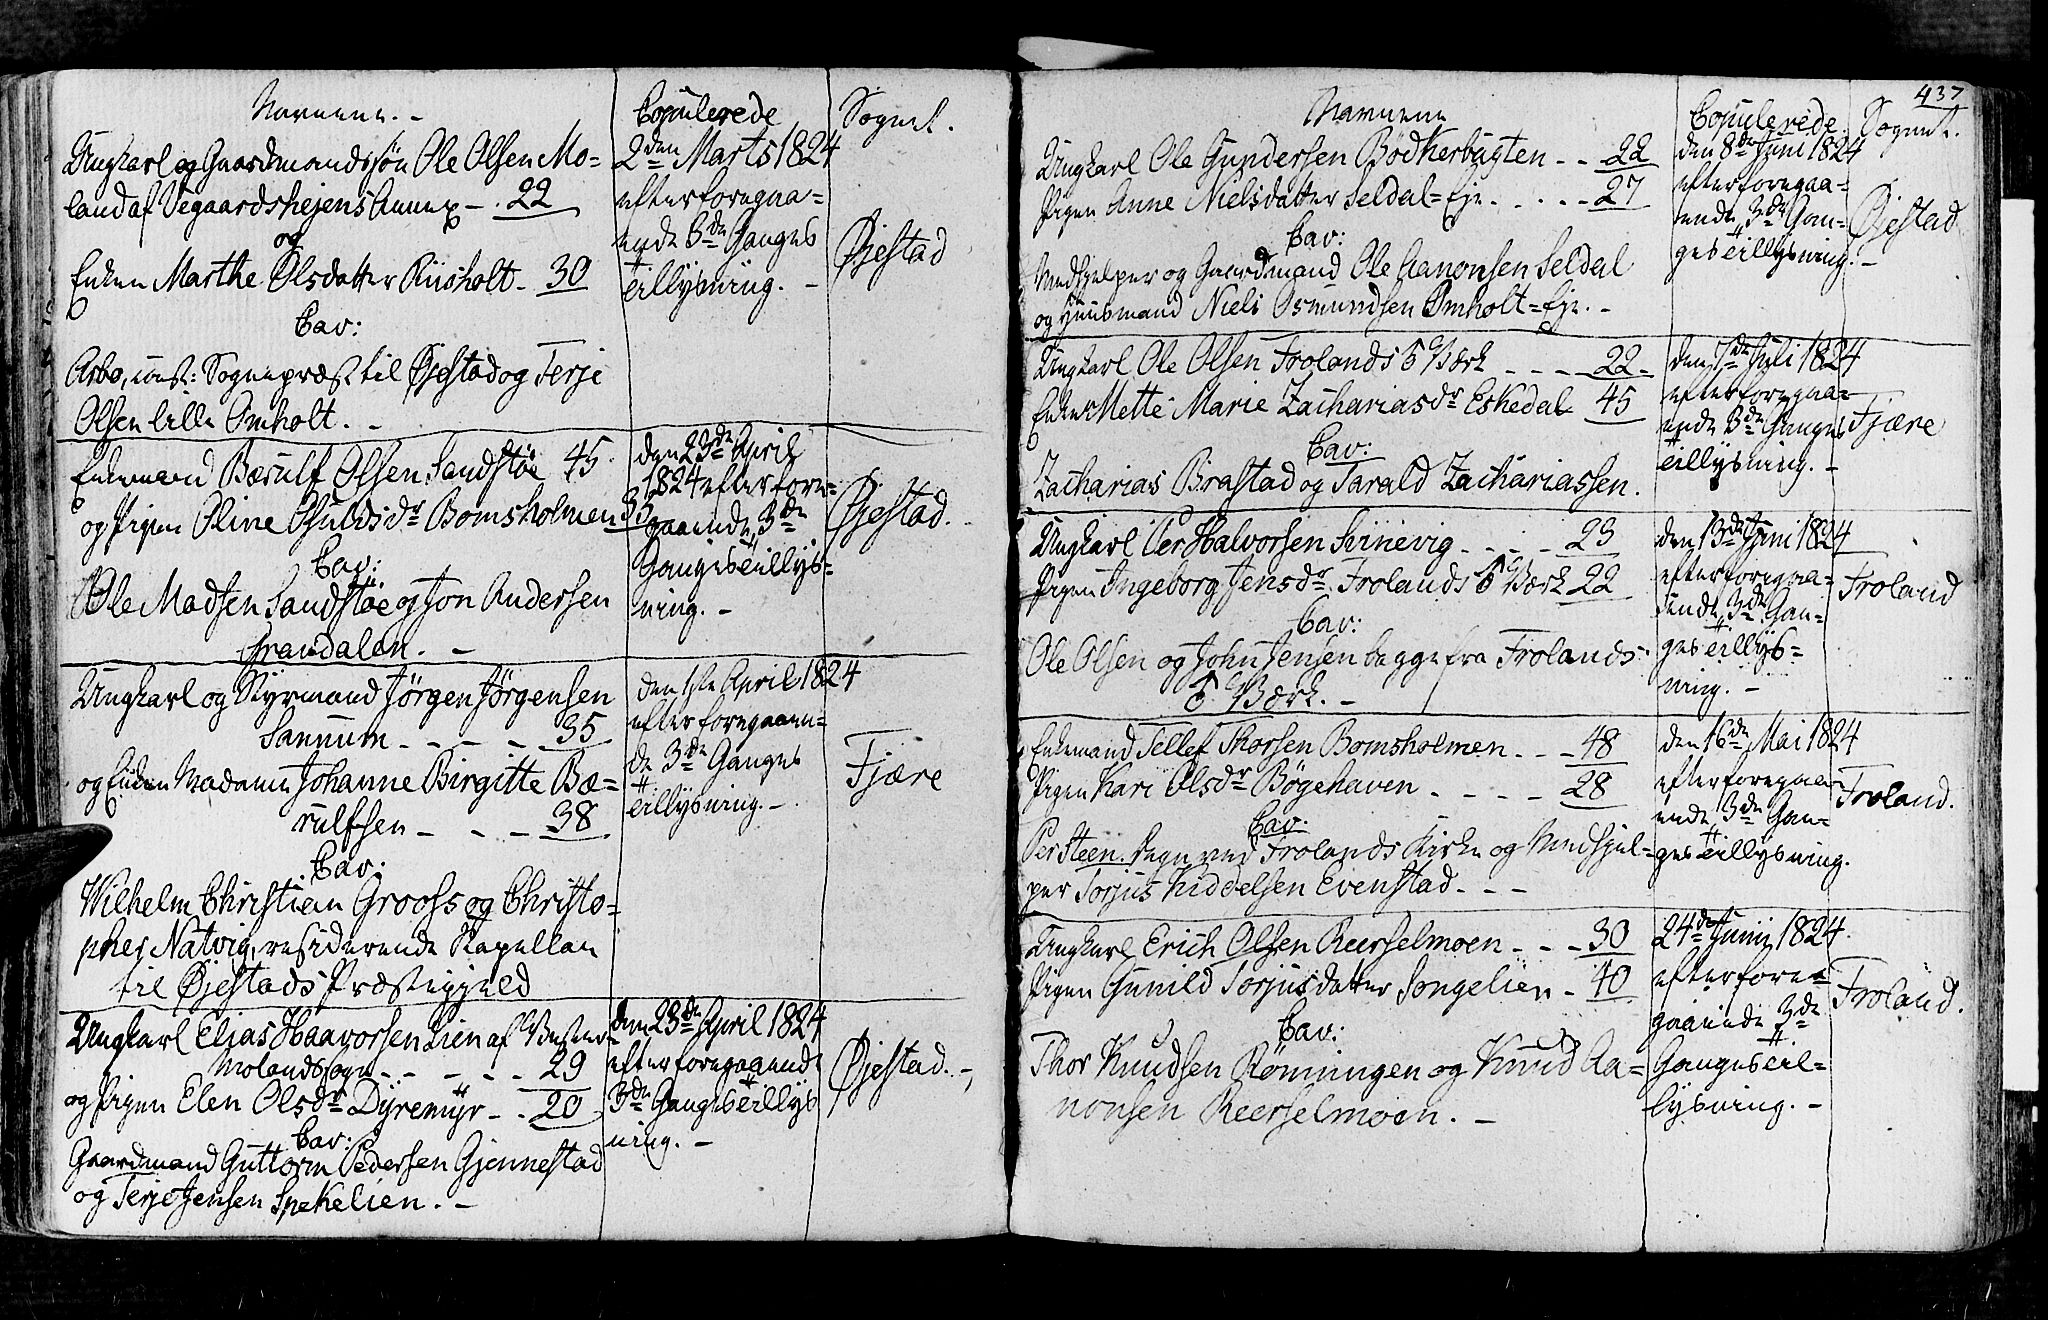 Navnene. -
Copulerede
Sognet.
Ungkarl og Gaardmandssøn Ole Olsen Mo=
land af Vegaardshejens Annex - . 22
og
Enken Marthe Olsdatter Riisholt - 30
Cav:
Arbo, const: Sognepræst til Øjestad og Terje
Olsen lille Omholt. -
2den Marts 1824
efter foregaa=
ende 3de Ganges
tillysning. -
Øjestad
Enkemand Bærulf Olsen Sandstøe 45.
og Pigen Oline Osulds dr Bomsholmen 35
Cav:
Ole Madsen Sandstøe og Jon Andersen
Grandalen. -
den 23de April
1824 efter fore=
gaaende 3de
Ganges tillys=
ning. -
Øjestad.
Ungkarl og Styrmand Jørgen Jørgensen
Sannum - - - - 35
og Enken Madame Johanne Birgitte Bæ=
rulfsen - - - 38
Cav:
Wilhelm Christian Grooss og Christo=
pher Natvig, residerende Kapellan
til Øjestads Præstegjeld
den 1ste April 1824
efter foregaaen=
de 3de Ganges
tillysning. -
Fjære
Ungkarl Elias Haavorsen Lien af Vester
Molands sogn - - - - - 29
og Pigen Elen Olsdr Dyremyr - . 20
Cav:
Gaardmand Guttorm Pedersen Gjennestad
og Terje Jensen Spekelien. -
den 23de April 1824
efter foregaaende
3de Ganges tillys
ning. -
Øjestad. -
437
Navnene
Copulerede
Sognet.
Ungkarl Ole Gundersen Bödkerbugten - - 22
Pigen Anne Nielsdatter Seldal=Eje - - - - 27
Cav:
Medhjelper og Gaardmand Ole Aanonsen Seldal
og Huusmand Niels Osmundsen Omholt=Eje. -
den 8de Juni 1824
efter foregaa=
ende 3de Gan=
ges tillysning. -
Øjestad
Ungkarl Ole Olsen Frolands Værk - - - - 22 -
Enken Mette Marie Zacharias dr Eskedal 45
Cav:
Zacharias Brastad og Tarald Zachariassen.
den 7de Juli 1824
efter foregaa=
ende 3de Ganges
tillysning. -
Fjære
Ungkarl Per Halvorsen Svinevig - - - - 23
Pigen Ingeborg Jensdr Frolands Værk 22
Cav:
Ole Olsen og John Jensen begge fra Frolands
Værk. -
den 13de Juni 1824
efter foregaa=
ende 3de Gan=
ges tillys=
ning. -
Froland
Enkemand Tellef Thorsen Bomsholmen - - - 48
Pigen Kari Olsdr Bøgehaven - - - - 28
Cav:
Per Steen Degn ved Frolands Kirke og Medhjel=
per Torjus Kiddelsen Evenstad - - -
den 16de Mai 1824
efter foregaa
ende 3de Gan=
ges tillysning.
Froland.
Ungkarl Erich Olsen Reerselmoen - - - 30
Pigen Gunild Torjusdatter Songelien - 40
Cav:
Thor Knudsen Rønningen og Knud Aa=
nonsen Reerselmoen. -
24de Junij 1824.
efter fore=
gaaende 3de
Ganges til=
lysning. -
Froland.